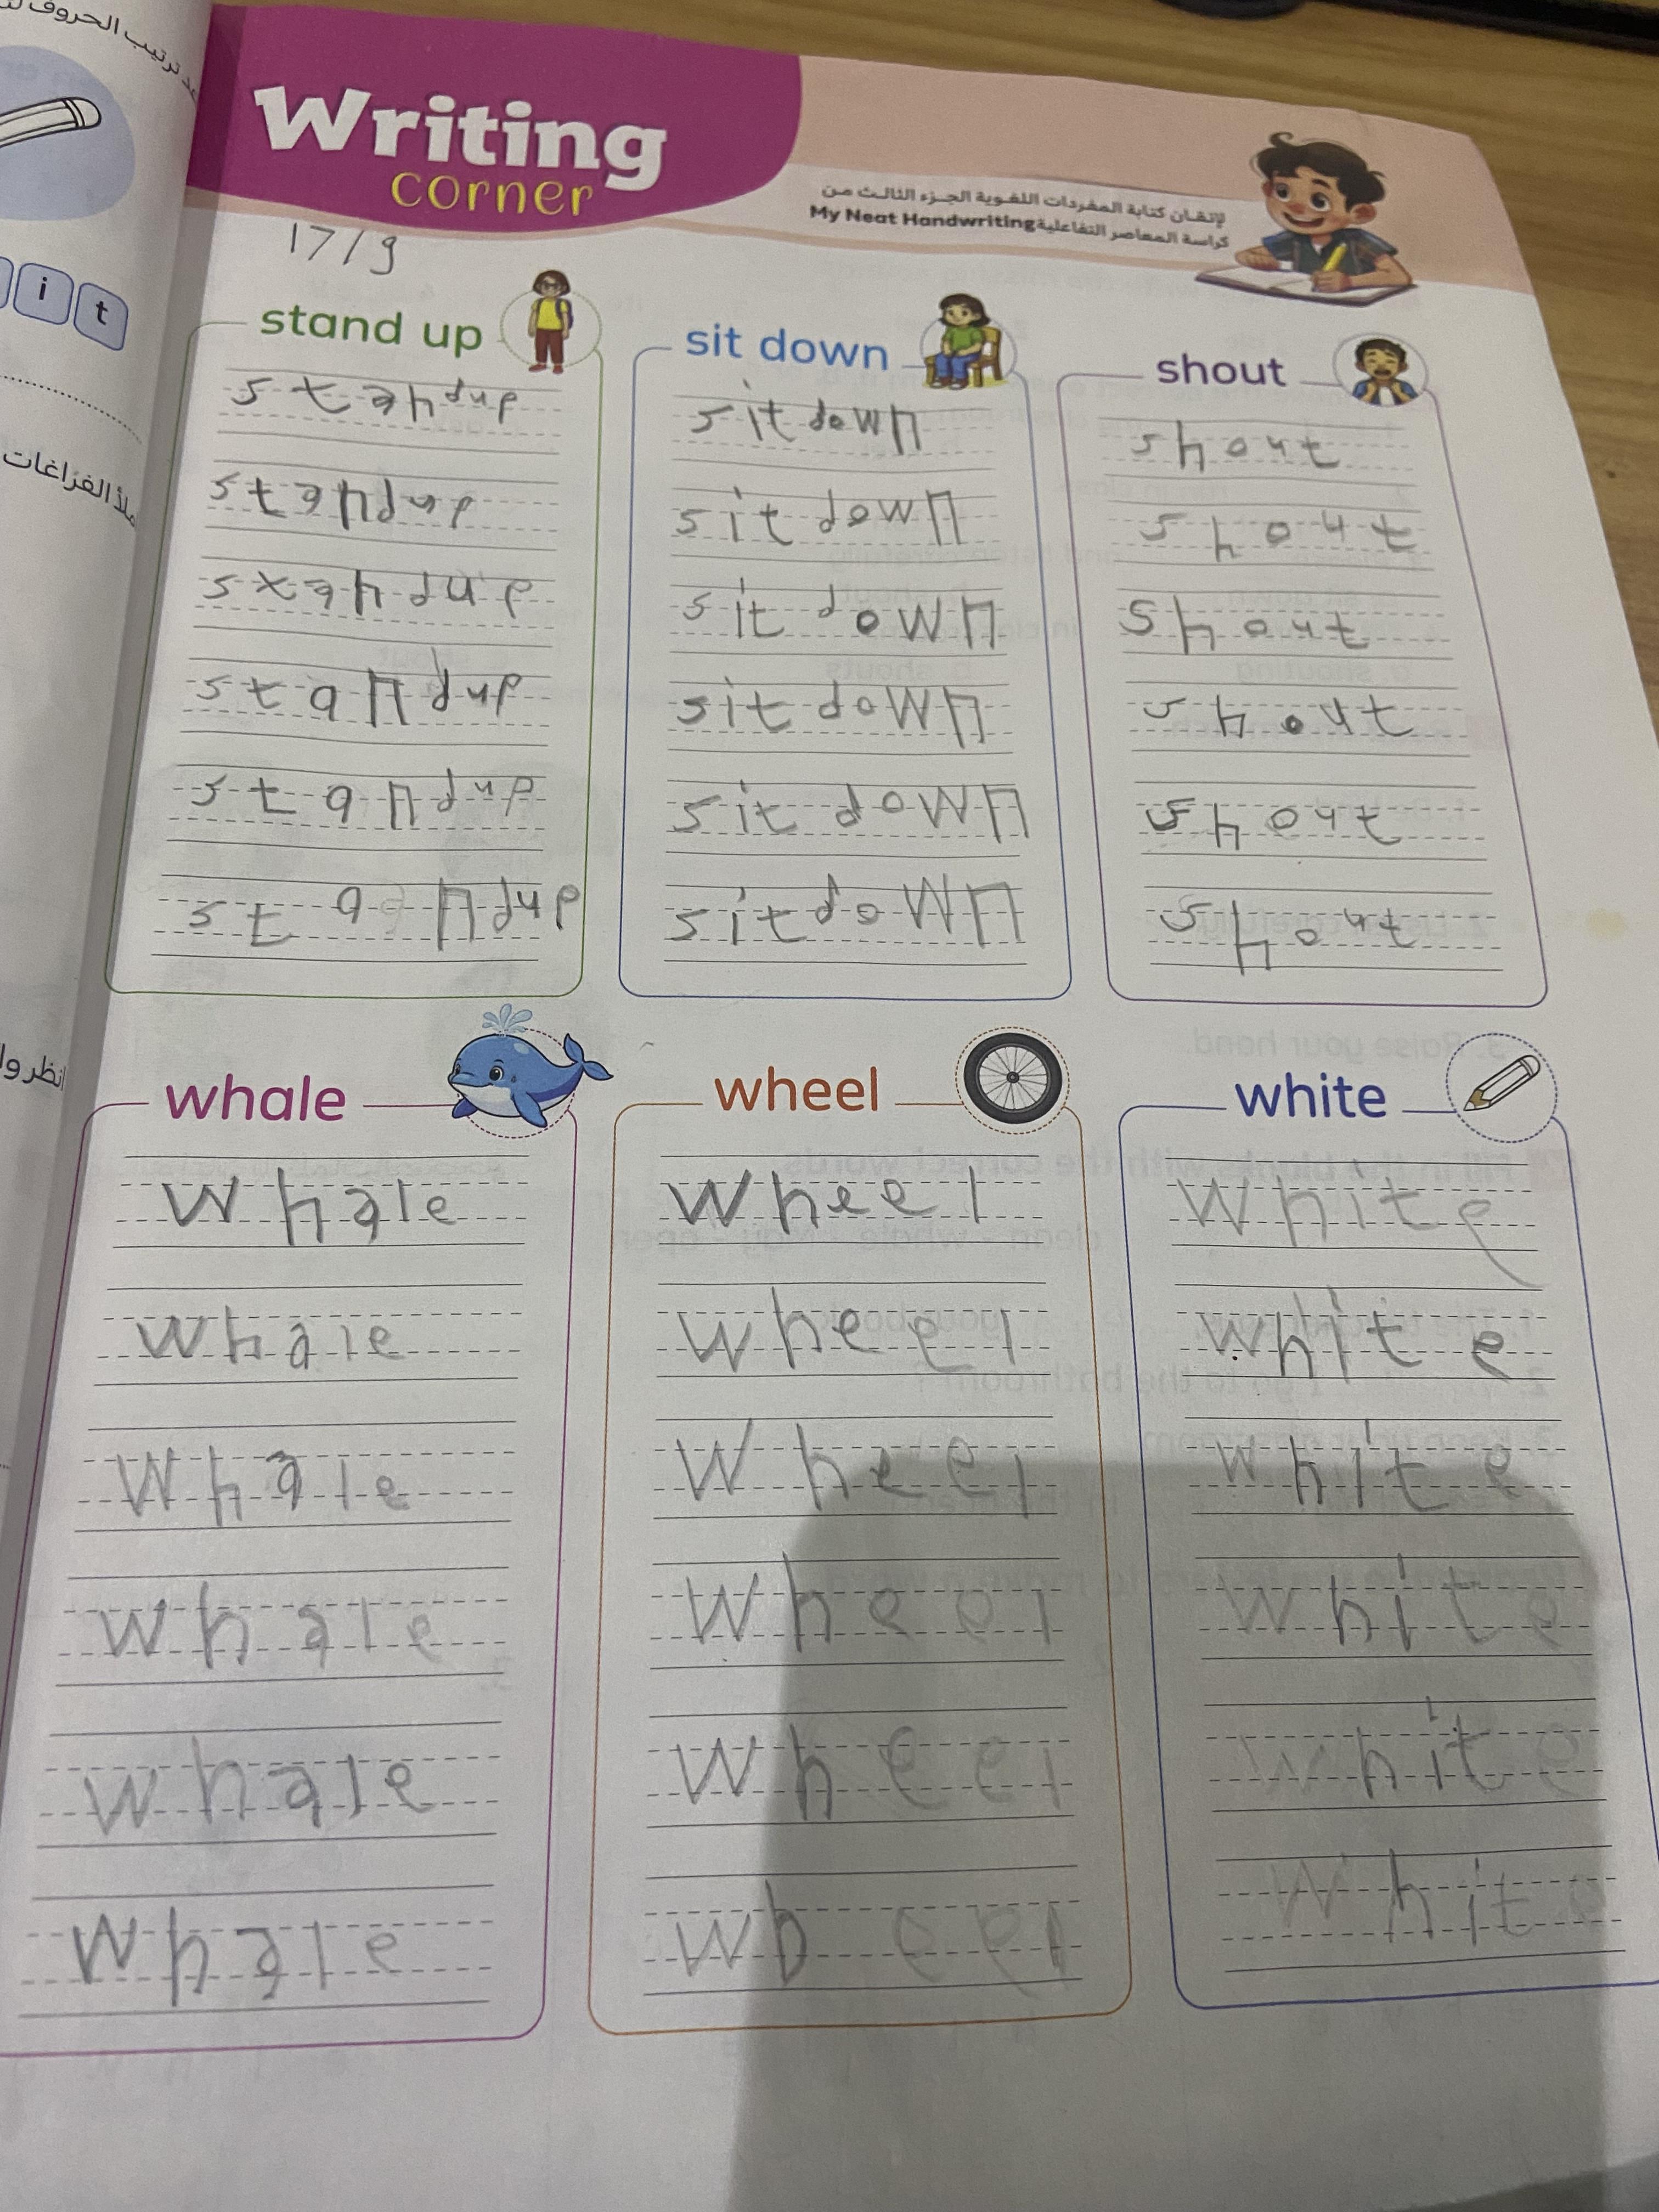 Writing
corner
لإتقان كتابة المفردات اللغوية الجزء الثالث من
كراسة المعاصر التفاعلية My Neat Handwriting
17/9
i t
stand up
stand up
stand up
stand up
stand up
stand up
stand up
sit down
sit down
sit down
sit down
sit down
sit down
sit down
shout
shout
shout
shout
shout
shout
shout
whale
whale
whale
whale
whale
whale
whale
wheel
wheel
wheel
wheel
wheel
wheel
wheel
white
white
white
white
white
white
white